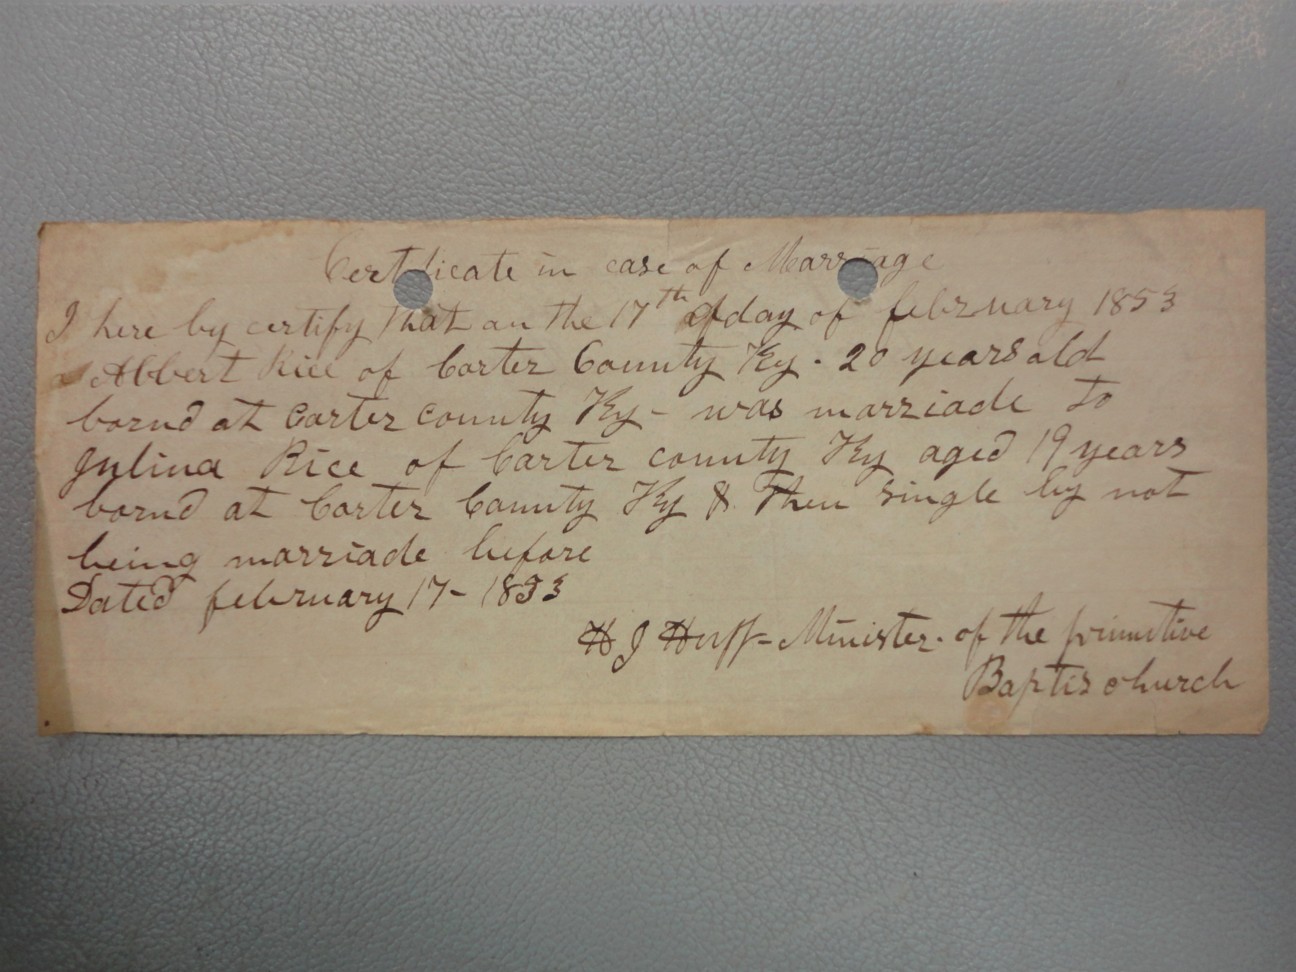 Certificate in case of Marriage
I here by certify that an the 17th day of february 1853
Albert Rice of Carter County Ky. 20 years old
bornd at Carter county Ky - was marriade to
Julina Rice of Carter county Ky aged 19 years
bornd at Carter County Ky & then single by not
being marriade before
Dated february 17 - 1853
H J Huff - Minister of the primitive
Baptis church